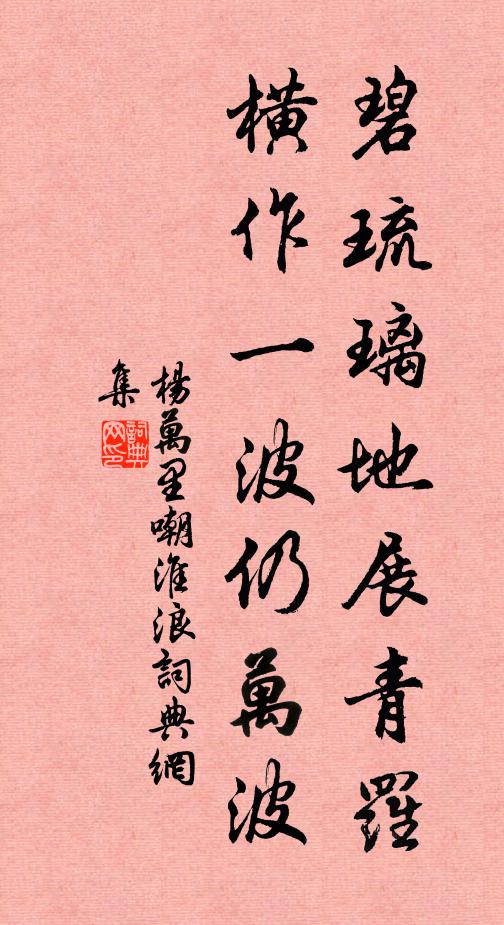 碧琉璃地展青羅
橫作一波仍萬波
楊萬里嘲淮浪詞典網
集
詞典网印